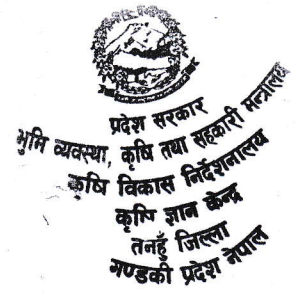 प्रदेश सरकार
भुमि व्यवस्था, कृषि तथा सहकारी मन्त्रालय
कृषि विकास निर्देशनालय
कृषि ज्ञान केन्द्र
तनहुँ जिल्ला
गण्डकी प्रदेश नेपाल